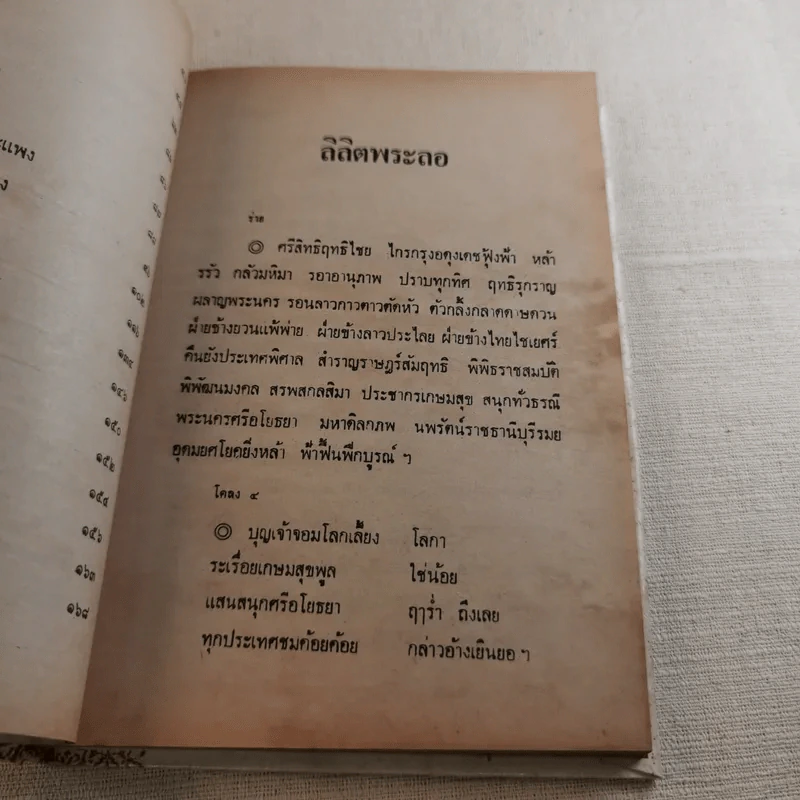 ะแพง
ง
๑๕๐
๑๕๒
๑๕๔
๑๕๖
๑๖๓
๑๖๘
ลิลิตพระลอ
ร่าย
◎ ศรีสิทธิฤทธิไชย ไกรกรุงอดุงเดชฟุ้งฟ้า หล้า
รรัว กลัวมหิมา รอาอานุภาพ ปราบทุกทิศ ฤทธิรุกราญ
ผลาญพระนคร รอนลาวกาวตาวตัดหัว ตัวกลิ้งกลาดดาษดวน
ฝ่ายข้างยวนแพ้พ่าย ฝ่ายข้างลาวประไลย ฝ่ายข้างไทยไชเยศร์
คืนยังประเทศพิศาล สำราญราษฎร์สัมฤทธิ พิพิธราชสมบัติ
พิพัฒนมงคล สรพสกลสิมา ประชากรเกษมสุข สนุกทั่วธรณี
พระนครศรีอโยธยา มหาดิลกภพ นพรัตน์ราชธานีบุรีรมย
อุดมยศโยคยิ่งหล้า ฟ้าฟื้นฟึกบูรณ์ ฯ
โคลง ๔
◎ บุญเจ้าจอมโลกเลี้ยง โลกา
ระเรื่อยเกษมสุขพูล ใช่น้อย
แสนสนุกศรีอโยธยา ฤๅร่ำ ถึงเลย
ทุกประเทศชมค้อยค้อย กล่าวอ้างเยินยอ ฯ